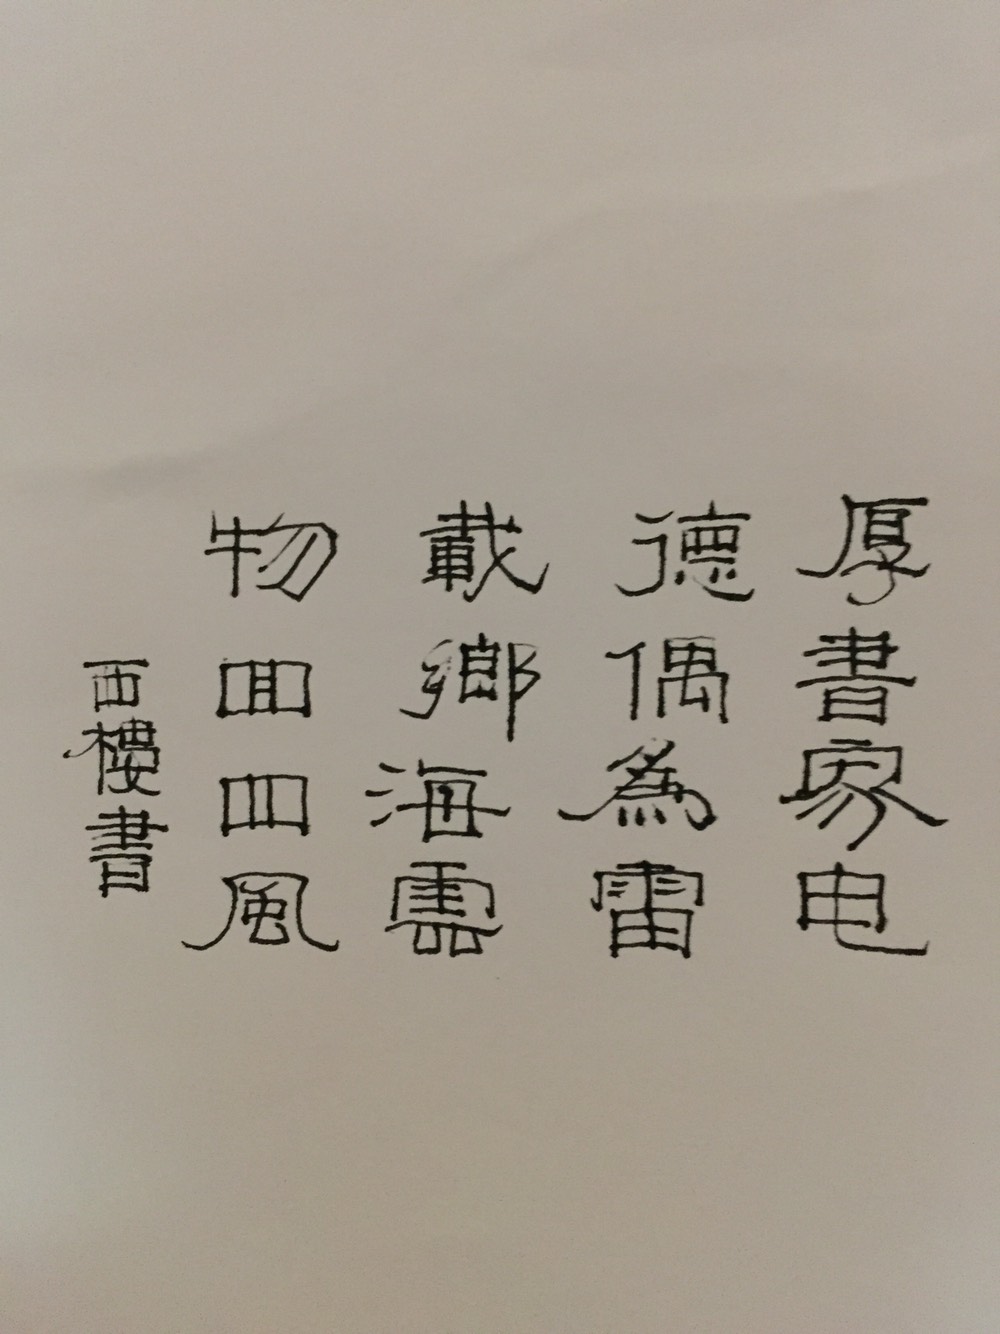 厚德載物
囬鄉偶書
四海為家
風雲雷电
西樓書